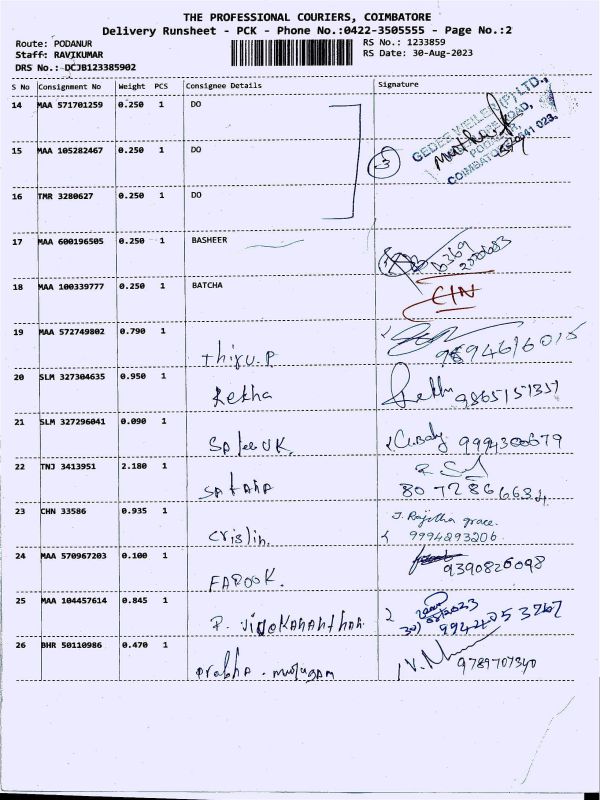 THE PROFESSIONAL COURIERS, COIMBATORE
Delivery Runsheet - PCK - Phone No.:0422-3505555 - Page No.:2
Route: PODANUR
Staff: RAVIKUMAR
DRS No.: DCJB123385902
RS No.: 1233859
RS Date: 30-Aug-2023
S No Consignment No Weight PCS Consignee Details Signature
14 MAA 571701259 0.250 1 DO
15 MAA 105282467 0.250 1 DO
16 TMR 3280627 0.250 1 DO
3
COIMBATORE
17 MAA 600196505 0.250 1 BASHEER
18 MAA 100339777 0.250 1 BATCHA
CIN
19 MAA 572749802 0.790 1
thiru.P
20 SLM 327304635 0.950 1
Rekha 9865151351
21 SLM 327296041 0.090 1
22 TNJ 3413951 2.180 1
23 CHN 33586 0.935 1
Crislin. J. Rajitha grace.
9994893206
24 MAA 570967203 0.100 1
FAROOK. 9390826098
25 MAA 104457614 0.845 1
P. 
26 BHR 50110986 0.470 1
Prabha. 9789707340